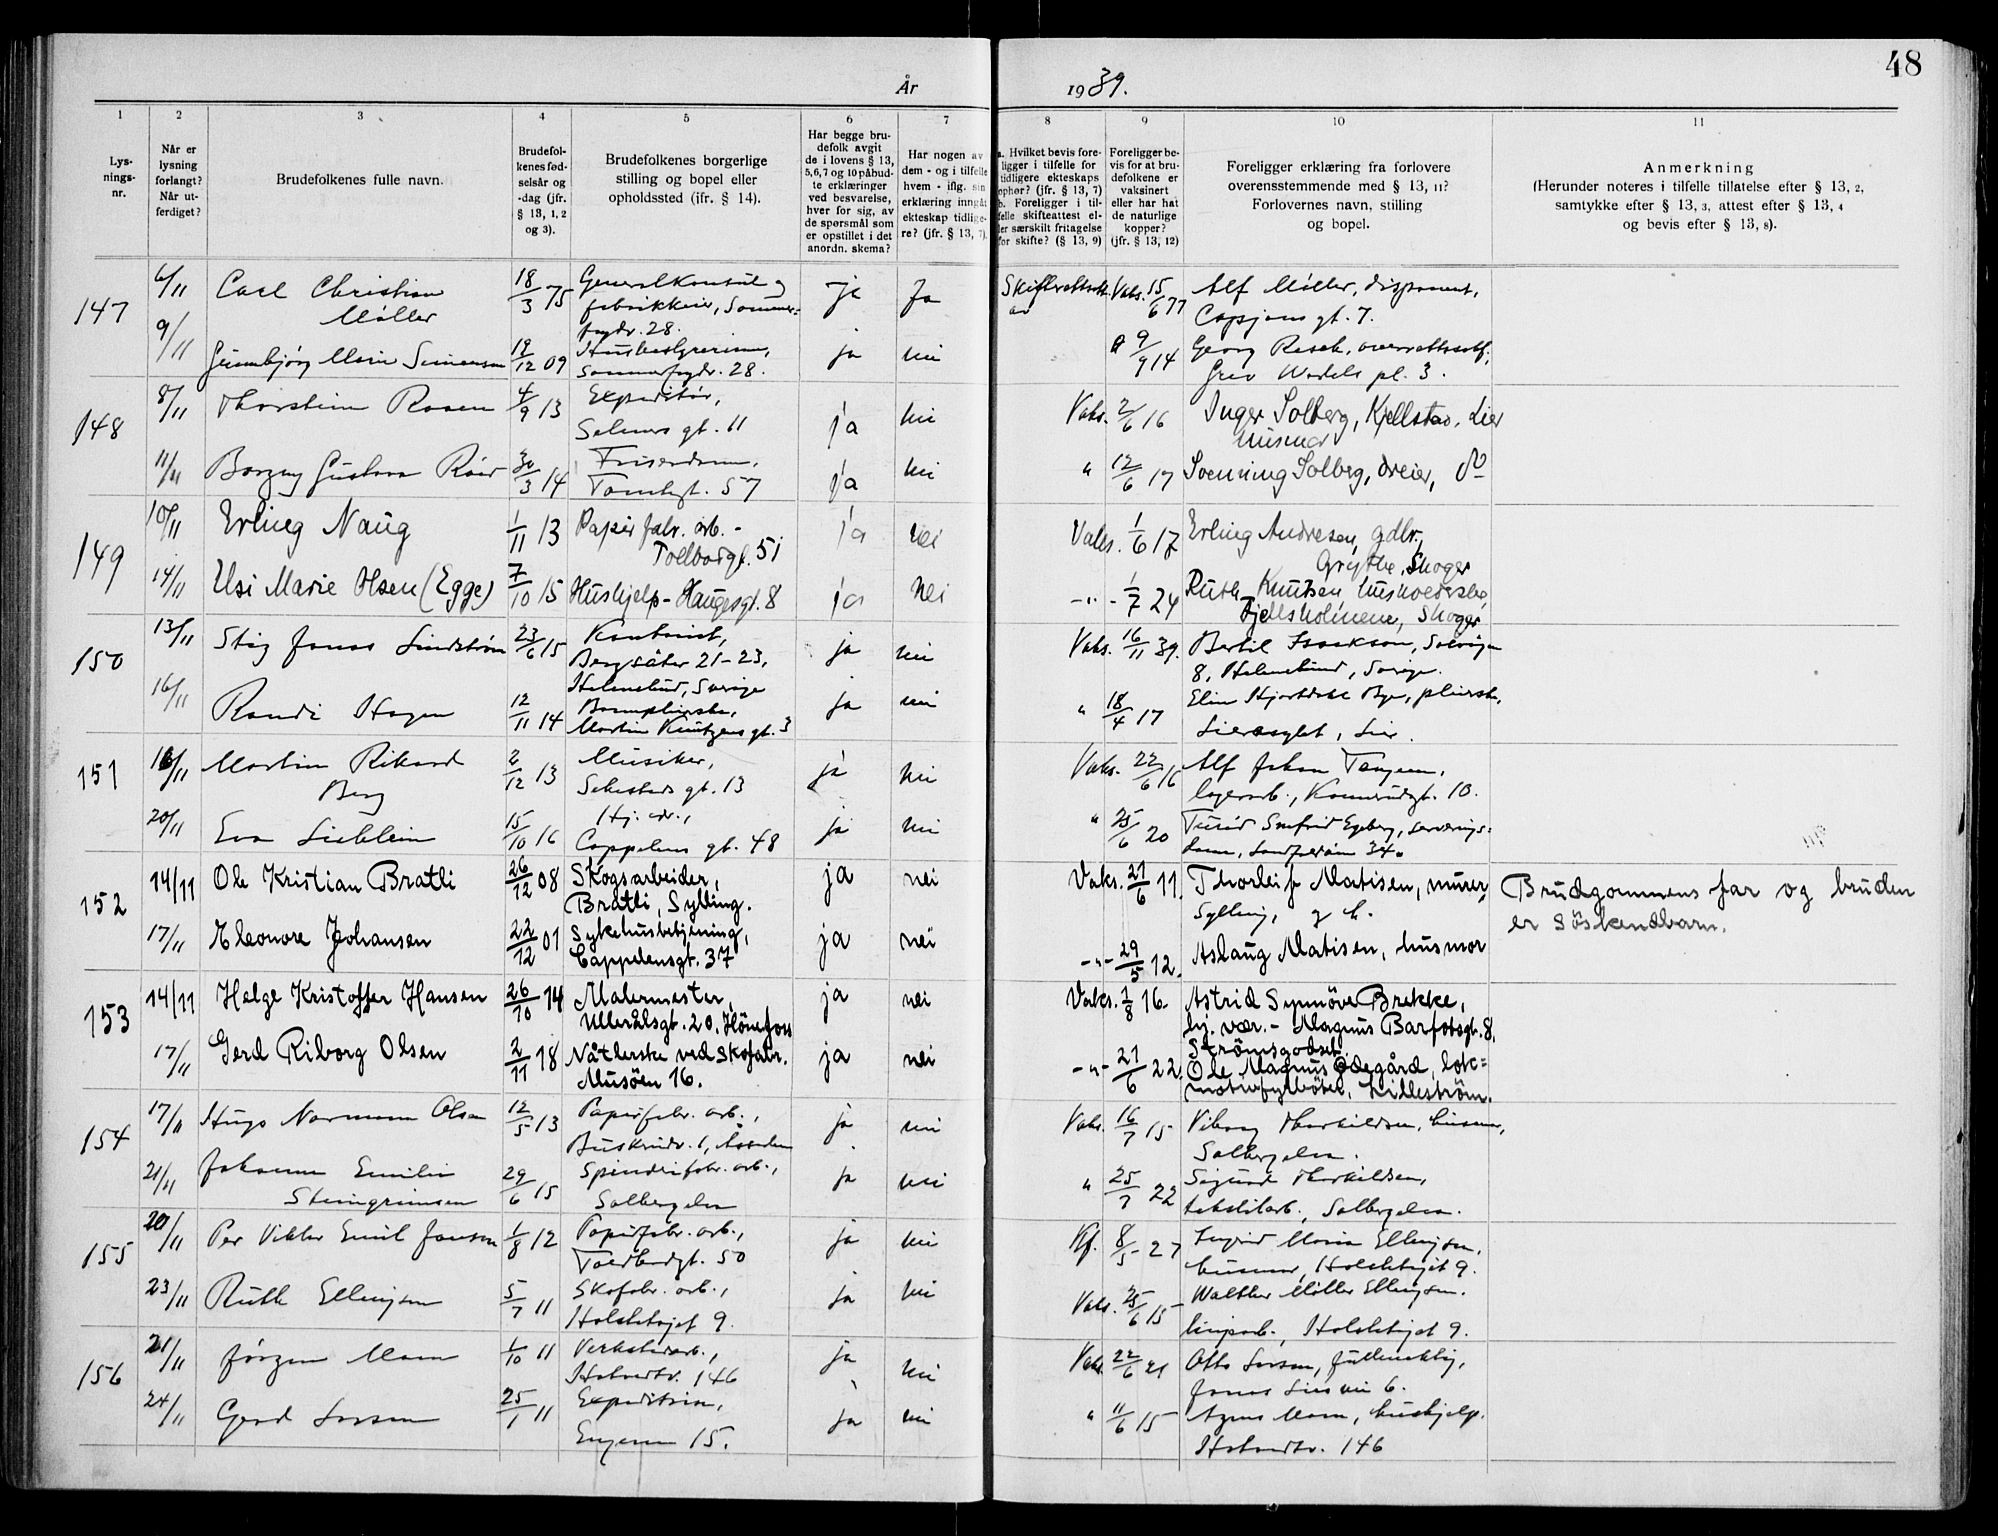 48
År 1939.
1 2 3 4 5 6 7 8 9 10 11
Lys-
nings-
nr.
Når er
lysning
forlangt?
Når ut-
ferdiget?
Brudefolkenes fulle navn.
Brudefol-
kenes fød-
selsår og
-dag (jfr.
§ 13, 1, 2
og 3).
Brudefolkenes borgerlige
stilling og bopel eller
opholdssted (jfr. § 14).
Har begge bru-
defolk avgit
de i lovens § 13,
5, 6, 7 og 10 påbud-
te erklæringer
ved besvarelse,
hver for sig, av
de spørsmål som
er opstillet i det
anordn. skema?
Har nogen av
dem - og i tilfelle
hvem - iflg. sin
erklæring inngåt
ekteskap tidlige-
re? (jfr. § 13, 7).
a. Hvilket bevis fore-
ligger i tilfelle for
tidligere ekteskaps
ophør? (jfr. § 13, 7)
b. Foreligger i til-
felle skifteattest el-
ler særskilt fritagelse
for skifte? (§ 13, 9)
Foreligger be-
vis for at bru-
defolkene er
vaksinert
eller har hat
de naturlige
kopper?
(jfr. § 13, 12)
Foreligger erklæring fra forlovere
overensstemmende med § 13, 11?
Forlovernes navn, stilling
og bopel.
Anmerkning
(Herunder noteres i tilfelle tillatelse efter § 13, 2,
samtykke efter § 13, 3, attest efter § 13, 4
og bevis efter § 13, 8).
147 6/11 Carl Christian 18/3 75 Generalkonsul og ja Ja Vaks. Alf Møller, disponent,
Møller fabrikkeier, Sommer- gt. 7.
9/11 frydv. 28.
Gunnbjørg Marie Simensen 19/12 09 Husbestyrerinne, ja nei " 9/9 14 Georg Resch, overrettssakf.
Sommerfrydv. 28. Grev Wedels pl. 3.
148 8/11 Thorstein Rosen 4/9 13 Expeditør, ja nei Vaks. 2/6 16 Inger Solberg, Kjellstad, Lier
Selmers gt. 11 husmor
11/11 Borgny Gustava 30/3 14 Friserdame, ja nei " 12/6 17 Svenning Solberg, dreier, do
gt. 57
149 10/11 Erling Naug 1/11 13 Papirfabr. arb. - ja nei Vaks. 1/6 17 Erling Andresen, gdbr.,
Tollbodgt. 51 Skoger
14/11 Usi Marie Olsen (Egge) 7/10 15 Hushjelp - Haugesgt. 8 ja nei -"- 1/7 24 Ruth Knutsen
Fjellsholmene, Skoger
150 13/11 Stig Jonas Lindström 23/6 15 Kontorist, ja nei Vaks. 16/11 39. Bertil Isaksson,
Bergsäter 21-23, 8, Helenelund, Sverige.
16/11 Helenelund, Sverige
Randi Hagen 12/11 14 Barnepleierske, ja nei " 18/4 17 Elin Bye, pleierske,
Martin Kintzens gt. 3 Lierasylet, Lier.
151 16/11 Martin Rikard 2/12 13 Musiker, ja nei Vaks. 22/6 16 Alf Johan Tangen,
Berg Sehesteds gt. 13 lagerarb., gt. 10.
20/11 Eva Lieblein 15/10 16 Hj. vær., ja nei " 25/6 20 Turid Egeberg, serverings-
Cappelens gt. 48 dame, 34.
152 14/11 Ole Kristian Bratli 26/12 08 Skogsarbeider, ja nei Vaks. 21/6 11. Thorleif Matisen, murer, Brudgommens far og bruden
Bratli, Sylling. Sylling, og h. er søskendbarn.
17/11 Eleonore Johansen 22/12 01 Sykehusbetjening, ja nei -"- 29/5 12. Aslaug Matisen, husmor
Cappelensgt. 37
153 14/11 Helge Kristoffer Hansen 26/10 14 Malermester, ja nei Vaks. 1/8 16. Astrid Synnöve Brekke,
Ullerålsgt. 20. Hönefoss hj. vær. - Magnus Barfotsgt. 8,
Strömsgodset.
17/11 Gerd Riborg Olsen 2/11 18 Nåtlerske ved Skofabr. ja nei -"- 21/6 22. Ole Magnus Ödegård, lok-
Musöen 16. motivfyrböter, Lilleström.
154 17/11 Hugo Normann Olsen 12/5 13 Papirfabr. arb., ja nei Vaks. 16/7 15 Viborg Thorkildsen, husmor,
Buskrudv. 1, Åssiden Solbergelva.
21/11 Johanne Emilie 29/6 15 Spinderifabr. arb., ja nei " 25/7 22 Sigurd Thorkildsen,
Steingrimsen Solbergelva tekstilarb., Solbergelva.
155 20/11 Per Viktor Emil Jonsen 1/8 12 Papirfabr. arb., ja nei Kf. 8/5 27 Ingrid Maria Ellingsen,
Tollbodgt. 50 husmor, Holsthøjet 9.
23/11 Ruth Ellingsen 5/7 11 Skofabr. arb., ja nei Vaks. 25/6 15 Walther Møller Ellingsen.
Holsthøjet 9. Holsthøjet 9.
156 21/11 Jörgen Moen 1/10 11 Verkstedarb., ja nei Vaks. 22/6 21 Otto Larsen,
Hotvedtv. 146 Jonas Lies vei 6.
24/11 Gerd Larsen 25/1 11 Expeditrise, ja nei " 11/6 15 Agnes Moen, hushjelp.
Engene 15. Hotvedtv. 146